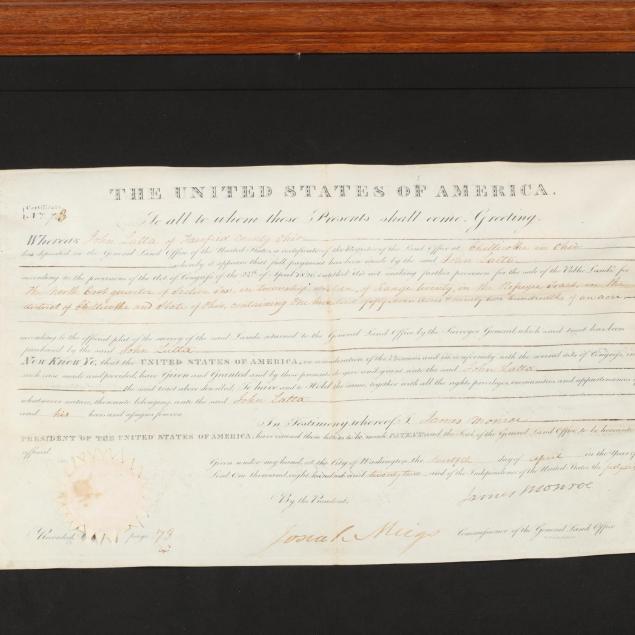 THE UNITED STATES OF AMERICA.
Certificate
To all to whom these Presents shall come, Greeting.
Whereas John Latta of Fairfield County Ohio
has deposited in the General Land Office of the United States, a certificate of the Register of the Land Office at Chillicothe in Ohio
whereby it appears that full payment has been made by the said John Latta
according to the provisions of the Act of Congress of the 24th of April 1820, entitled An act making further provision for the sale of the Public Lands, for
The North East quarter of Section in township of Range twenty, in the Refugee Tract, in the
district of Chillicothe and State of Ohio, containing one hundred fifty seven acres twenty two hundredths of an acre
according to the official plat of the survey of the said Lands, returned to the General Land Office by the Surveyor General, which said tract has been
purchased by the said John Latta
Now Know Ye, that the UNITED STATES OF AMERICA, in consideration of the Premises, and in conformity with the several acts of Congress, in
such case made and provided, have Given and Granted and by these presents do give and grant unto the said John Latta
the said tract above described, To have and to Hold the same, together with all the rights, privileges, immunities, and appurtenances of
whatsoever nature, thereunto belonging, unto the said John Latta
and his heirs and assigns forever.
In Testimony whereof, I, James Monroe
PRESIDENT OF THE UNITED STATES OF AMERICA, have caused these Letters to be made PATENT, and the Seal of the General Land Office to be hereunto
affixed.
Given under my hand, at the City of Washington, the day of April in the Year of
Lord One thousand eight hundred and twenty two and of the Independence of the United States the
James Monroe
By the President,
Josiah Meigs Commissioner of the General Land Office
Recorded, page 73